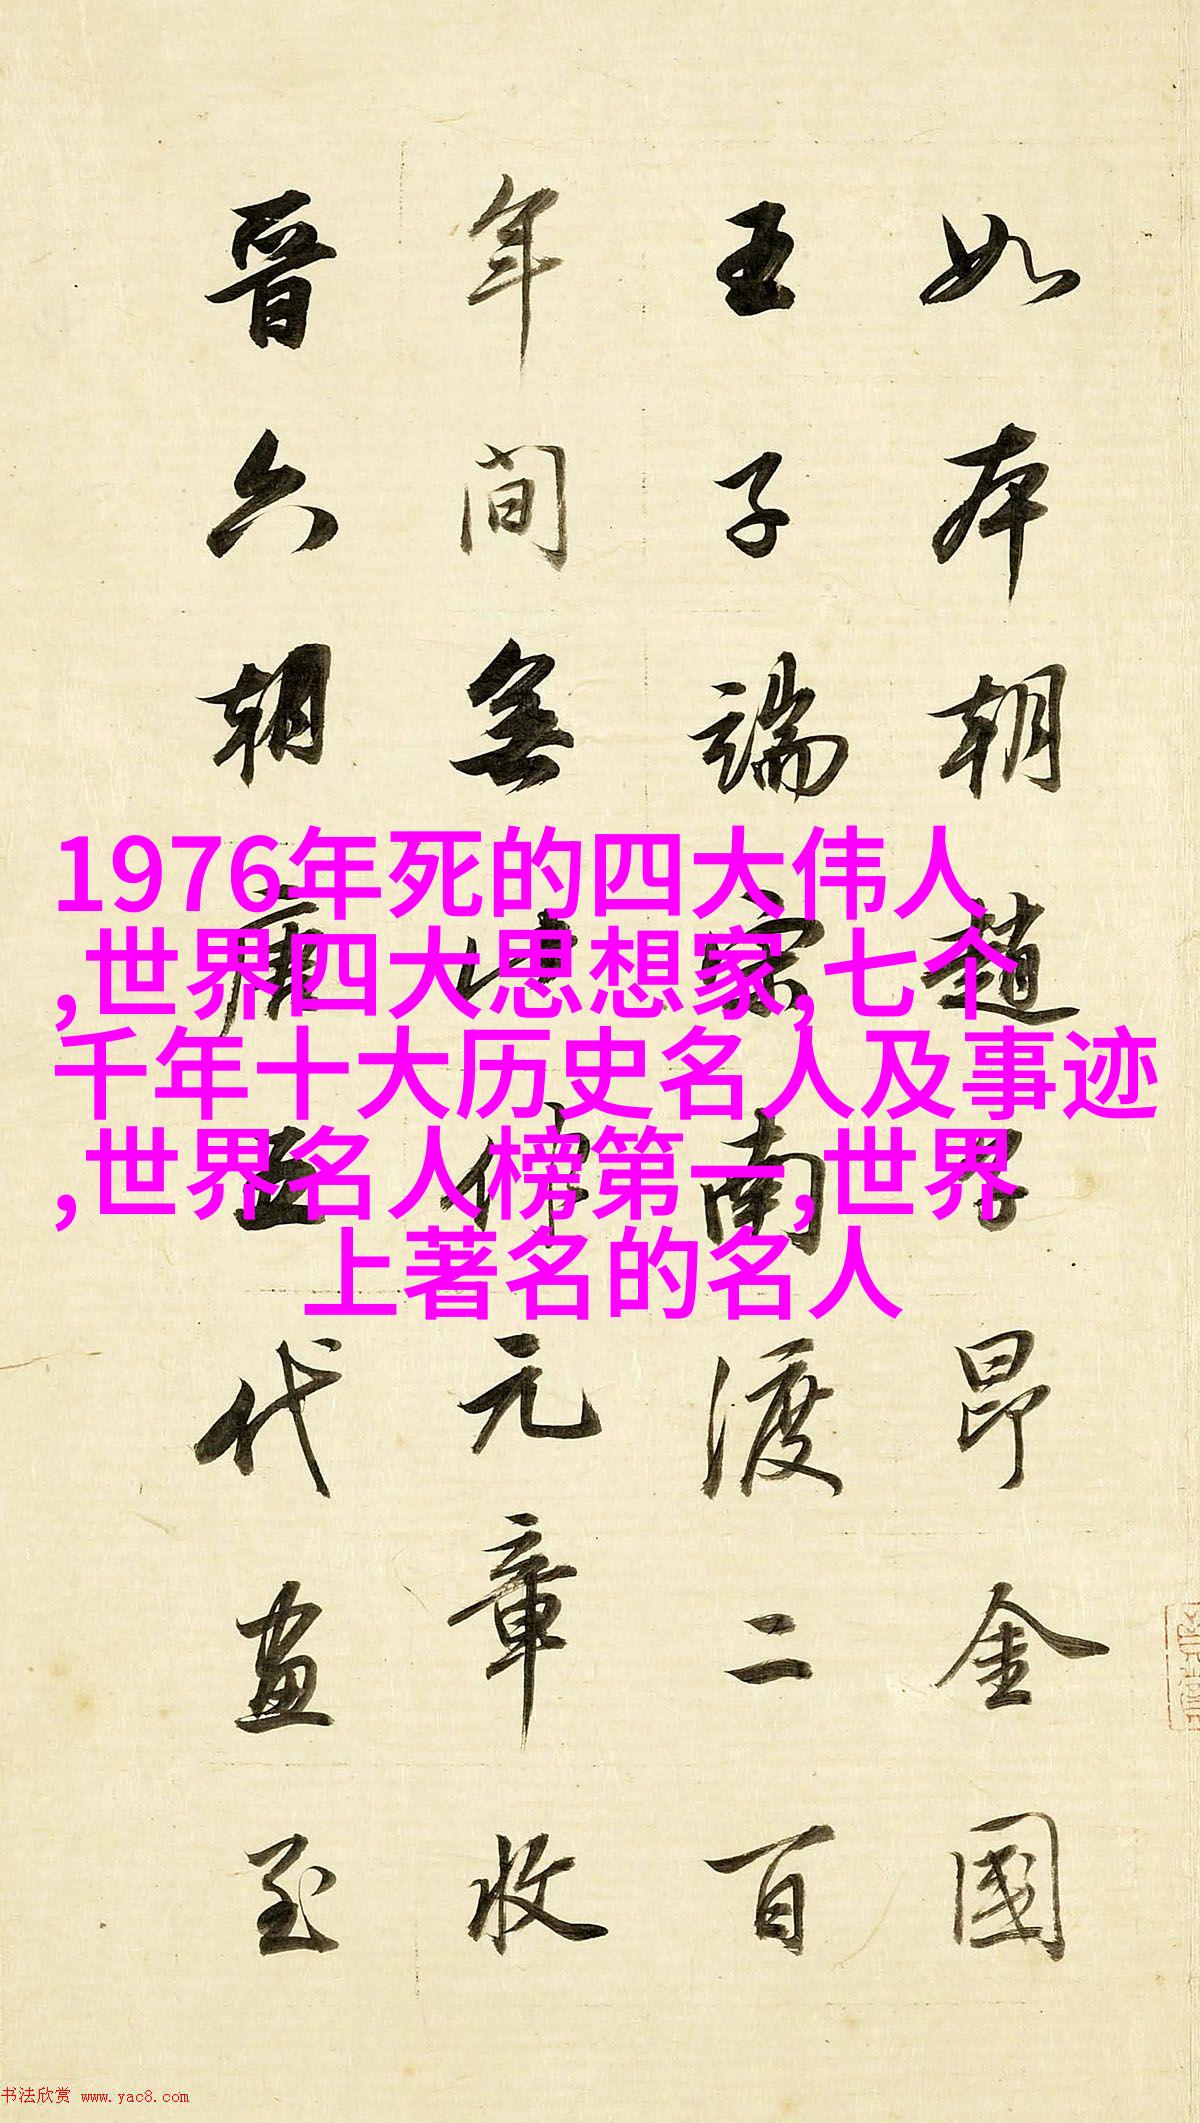 1976年死的四大伟人
,世界四大思想家,七个
千年十大历史名人及事迹
,世界名人榜第一,世界
上著名的名人
如本朝趙子昂金國
王子端宋南渡二百
年間無此元章收
晉六朝唐五代畫至
书法欣赏 www.yac8.com